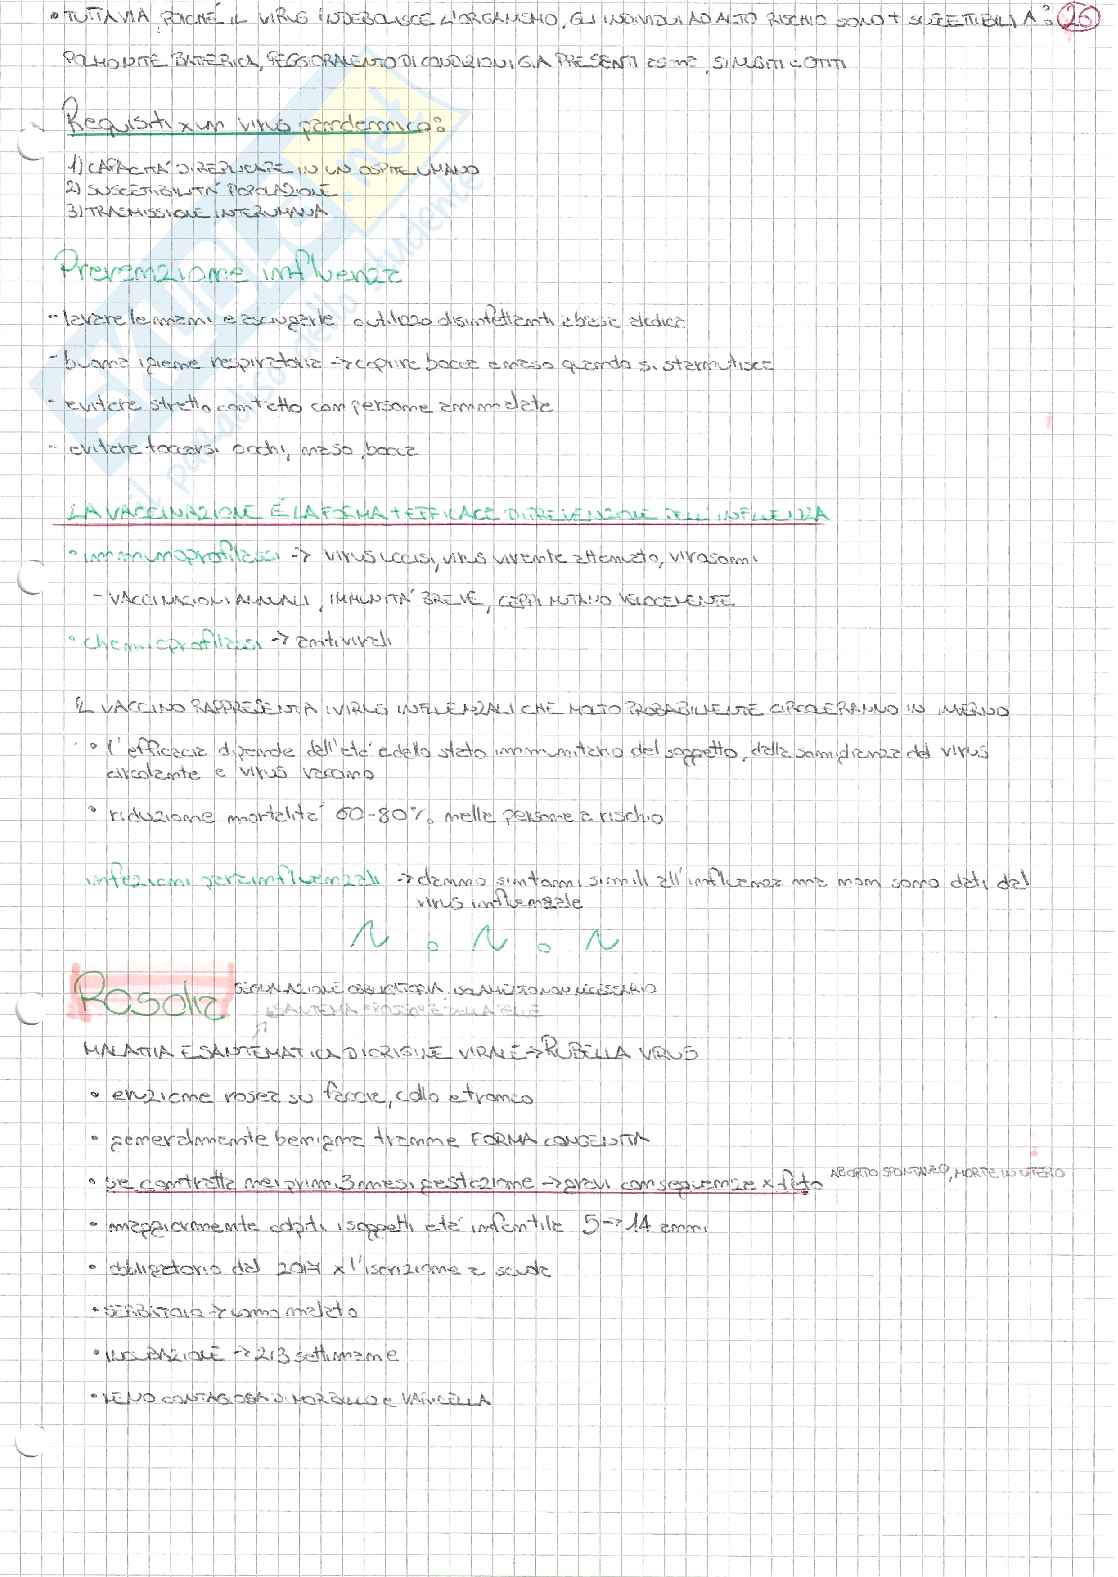 • TUTTAVIA, POICHÉ IL VIRUS INDEBOLISCE L'ORGANISMO, GLI INDIVIDUI AD ALTO RISCHIO SONO + SUSCETTIBILI A: 26
POLMONITE BATTERICA, PEGGIORAMENTO DI CONDIZIONI GIÀ PRESENTI, ASMA, SINUSITI E OTITI
Requisiti x un virus pandemico:
1) CAPACITÀ DI REPLICARE IN UN OSPITE UMANO
2) SUSCETTIBILITÀ POPOLAZIONE
3) TRASMISSIONE INTERUMANA
Prevenzione influenza
- lavare le mani e asciugarle o utilizzo disinfettanti a base alcolica
- buona igiene respiratoria → coprire bocca e naso quando si starnutisce
- evitare stretto contatto con persone ammalate
- evitare toccarsi occhi, naso, bocca
LA VACCINAZIONE È LA FORMA + EFFICACE DI PREVENZIONE DELL'INFLUENZA
• immunoprofilassi → virus uccisi, virus vivente attenuato, virosomi
- VACCINAZIONI ANNUALI, IMMUNITÀ BREVE, CEPPI MUTANO VELOCEMENTE
• chemioprofilassi → antivirali
IL VACCINO RAPPRESENTA I VIRUS INFLUENZALI CHE MOLTO PROBABILMENTE CIRCOLERANNO IN INVERNO
• l'efficacia dipende dall'età e dallo stato immunitario del soggetto, dalla somiglianza del virus
circolante e virus vaccino
• riduzione mortalità 60-80% nelle persone a rischio
infezioni parainfluenzali → danno sintomi simili all'influenza ma non sono dati dal
virus influenzale
Rosolia SEGNALAZIONE OBBLIGATORIA, ISOLAMENTO NON NECESSARIO
MALATTIA ESANTEMATICA DI ORIGINE VIRALE → RUBELLA VIRUS
• eruzione rosea su faccia, collo e tronco
• generalmente benigna tranne FORMA CONGENITA
• se contratta nei primi 3 mesi gestazione → gravi conseguenze x feto ABORTO SPONTANEO, MORTE IN UTERO
• maggiormente colpiti i soggetti età infantile 5 → 14 anni
• obbligatorio dal 2017 x l'iscrizione a scuola
• SERBATOIO → uomo malato
• INCUBAZIONE → 2/3 settimane
• MENO CONTAGIOSA DI MORBILLO E VARICELLA
SKUOLA.net
il paradiso dello studente